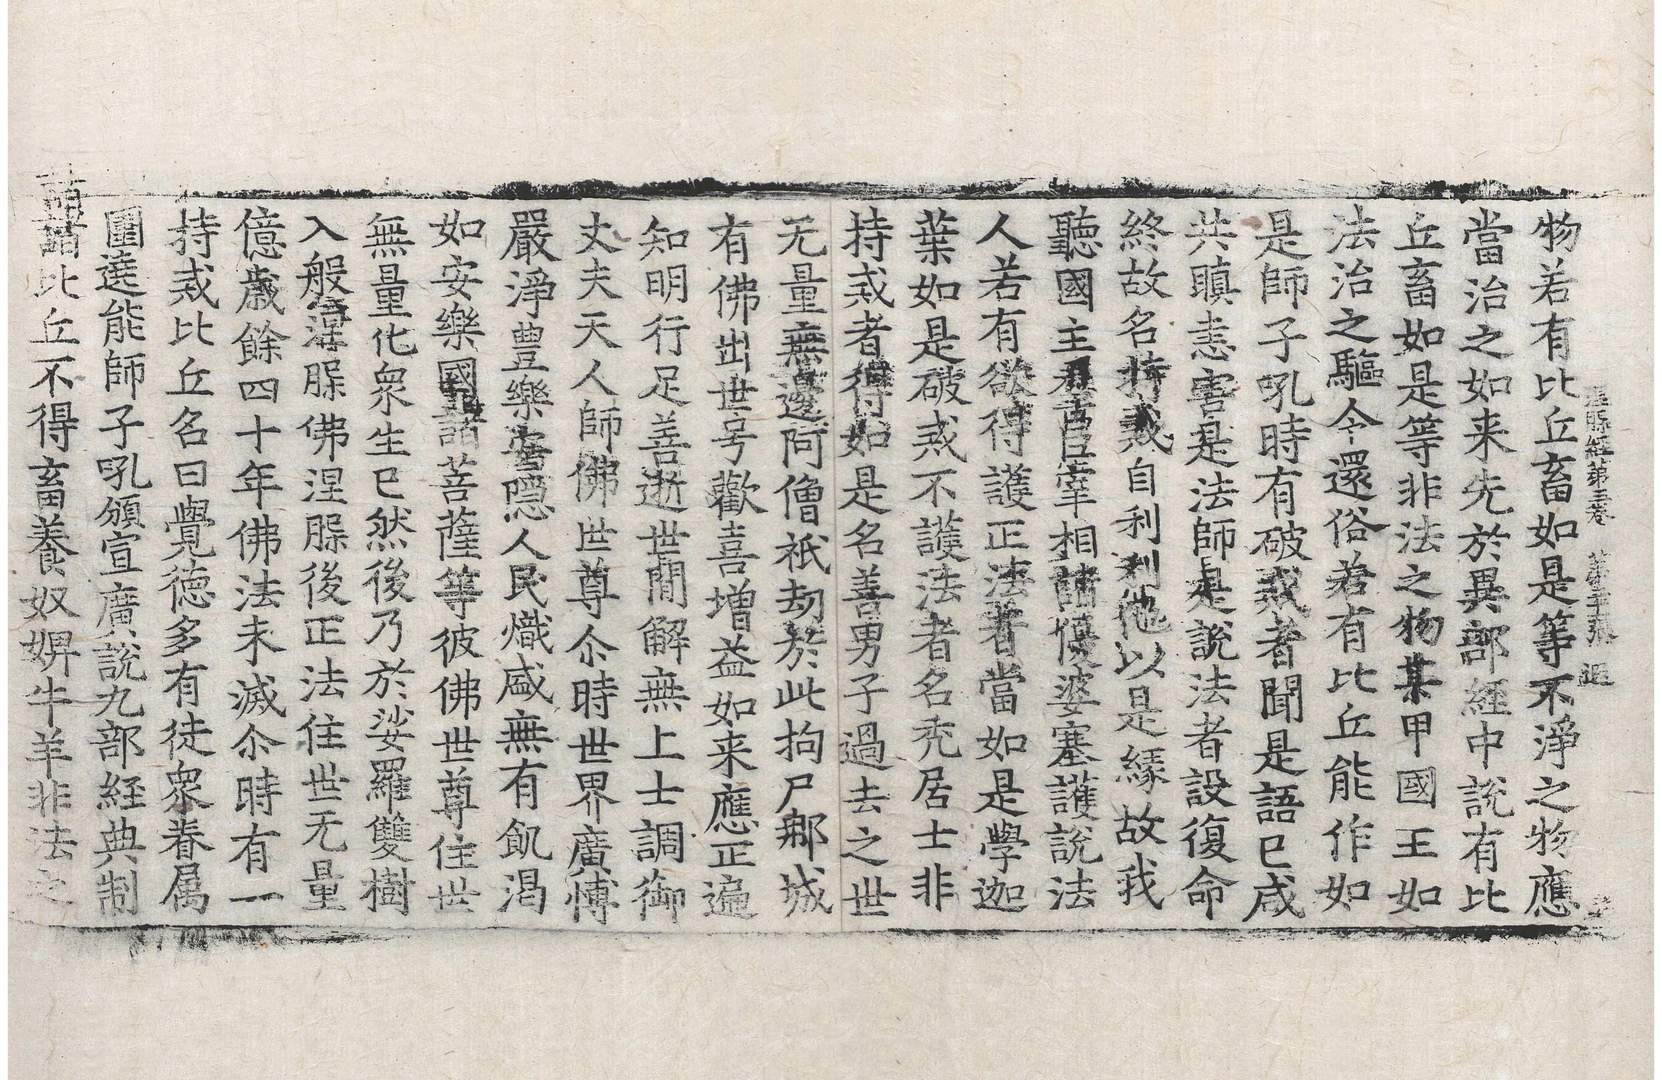 涅槃經第三卷 第十二張 遐
物若有比丘畜如是等不淨之物應
當治之如来先於異部經中說有比
丘畜如是等非法之物某甲國王如
法治之驅令還俗若有比丘能作如
是師子吼時有破戒者聞是語已咸
共瞋恚害是法師是說法者設復命
終故名持戒自利利他以是緣故我
聽國主羣臣宰相諸優婆塞護說法
人若有欲得護正法者當如是學迦
葉如是破戒不護法者名禿居士非
持戒者得如是名善男子過去之世
无量無邊阿僧祇劫於此拘尸那城
有佛出世号歡喜增益如来應正遍
知明行足善逝世間解無上士調御
丈夫天人師佛世尊尒時世界廣博
嚴淨豊樂安隱人民熾盛無有飢渴
如安樂國諸菩薩等彼佛世尊住世
無量化衆生已然後乃於娑羅雙樹
入般涅槃佛涅槃後正法住世无量
億歲餘四十年佛法未滅尒時有一
持戒比丘名曰覺德多有徒衆眷属
圍遶能師子吼頒宣廣說九部經典制
諸比丘不得畜養奴婢牛羊非法之